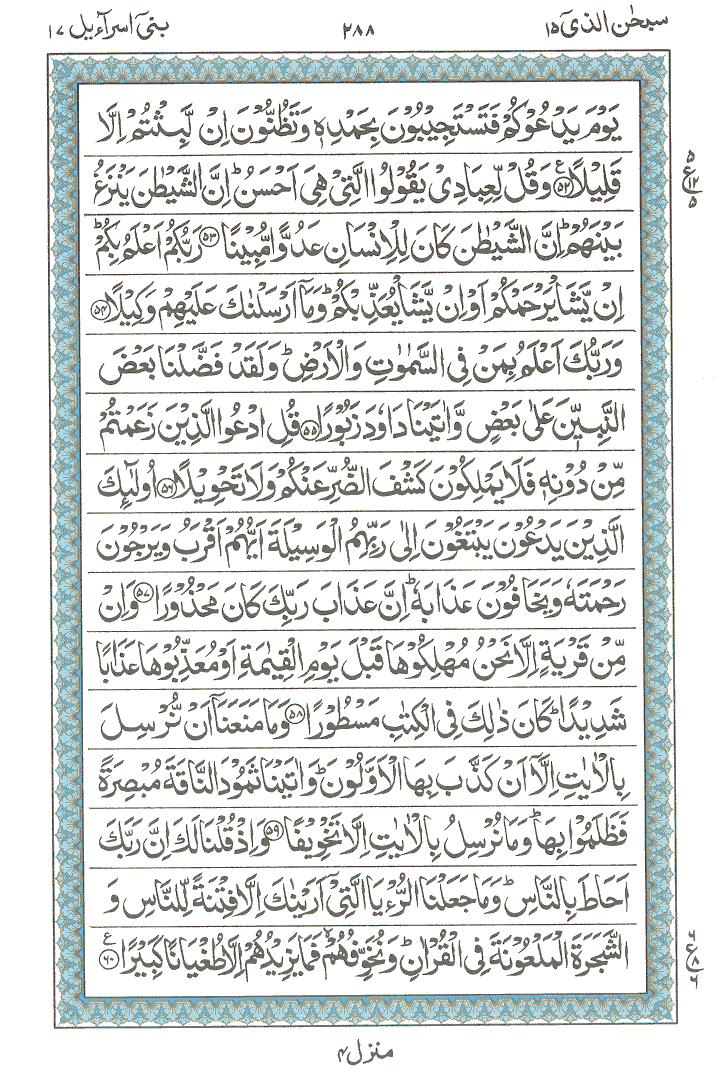 سبحٰن الذیۤ ۱۵ ۲۸۸ بنیۤ اسرآءیل ۱۷
يَوْمَ يَدْعُوْكُمْ فَتَسْتَجِيْبُوْنَ بِحَمْدِهٖ وَتَظُنُّوْنَ اِنْ لَّبِثْتُمْ اِلَّا
قَلِيْلًا ﴿۵۲﴾ ع وَقُلْ لِّعِبَادِىْ يَقُوْلُوا الَّتِىْ هِىَ اَحْسَنُ ؕ اِنَّ الشَّيْطٰنَ يَنْزَغُ
بَيْنَهُمْ ؕ اِنَّ الشَّيْطٰنَ كَانَ لِلْاِنْسَانِ عَدُوًّا مُّبِيْنًا ﴿۵۳﴾ رَبُّكُمْ اَعْلَمُ بِكُمْ ؕ
اِنْ يَّشَاْ يَرْحَمْكُمْ اَوْ اِنْ يَّشَاْ يُعَذِّبْكُمْ ؕ وَمَاۤ اَرْسَلْنٰكَ عَلَيْهِمْ وَكِيْلًا ﴿۵۴﴾
وَرَبُّكَ اَعْلَمُ بِمَنْ فِى السَّمٰوٰتِ وَالْاَرْضِ ؕ وَلَقَدْ فَضَّلْنَا بَعْضَ
النَّبِيّٖنَ عَلٰى بَعْضٍ وَّاٰتَيْنَا دَاوٗدَ زَبُوْرًا ﴿۵۵﴾ قُلِ ادْعُوا الَّذِيْنَ زَعَمْتُمْ
مِّنْ دُوْنِهٖ فَلَا يَمْلِكُوْنَ كَشْفَ الضُّرِّ عَنْكُمْ وَلَا تَحْوِيْلًا ﴿۵۶﴾ اُولٰٓئِكَ
الَّذِيْنَ يَدْعُوْنَ يَبْتَغُوْنَ اِلٰى رَبِّهِمُ الْوَسِيْلَةَ اَيُّهُمْ اَقْرَبُ وَيَرْجُوْنَ
رَحْمَتَهٗ وَيَخَافُوْنَ عَذَابَهٗ ؕ اِنَّ عَذَابَ رَبِّكَ كَانَ مَحْذُوْرًا ﴿۵۷﴾ وَاِنْ
مِّنْ قَرْيَةٍ اِلَّا نَحْنُ مُهْلِكُوْهَا قَبْلَ يَوْمِ الْقِيٰمَةِ اَوْ مُعَذِّبُوْهَا عَذَابًا
شَدِيْدًا ؕ كَانَ ذٰلِكَ فِى الْكِتٰبِ مَسْطُوْرًا ﴿۵۸﴾ وَمَا مَنَعَنَاۤ اَنْ نُّرْسِلَ
بِالْاٰيٰتِ اِلَّاۤ اَنْ كَذَّبَ بِهَا الْاَوَّلُوْنَ ؕ وَاٰتَيْنَا ثَمُوْدَ النَّاقَةَ مُبْصِرَةً
فَظَلَمُوْا بِهَا ؕ وَمَا نُرْسِلُ بِالْاٰيٰتِ اِلَّا تَخْوِيْفًا ﴿۵۹﴾ وَاِذْ قُلْنَا لَكَ اِنَّ رَبَّكَ
اَحَاطَ بِالنَّاسِ ؕ وَمَا جَعَلْنَا الرُّءْيَا الَّتِىْۤ اَرَيْنٰكَ اِلَّا فِتْنَةً لِّلنَّاسِ وَ
الشَّجَرَةَ الْمَلْعُوْنَةَ فِى الْقُرْاٰنِ ؕ وَنُخَوِّفُهُمْ ۙ فَمَا يَزِيْدُهُمْ اِلَّا طُغْيَانًا كَبِيْرًا ﴿۶۰﴾ ع
۵ ع ۱۲ ۵
۶ ع ۸ ۶
منزل ۴